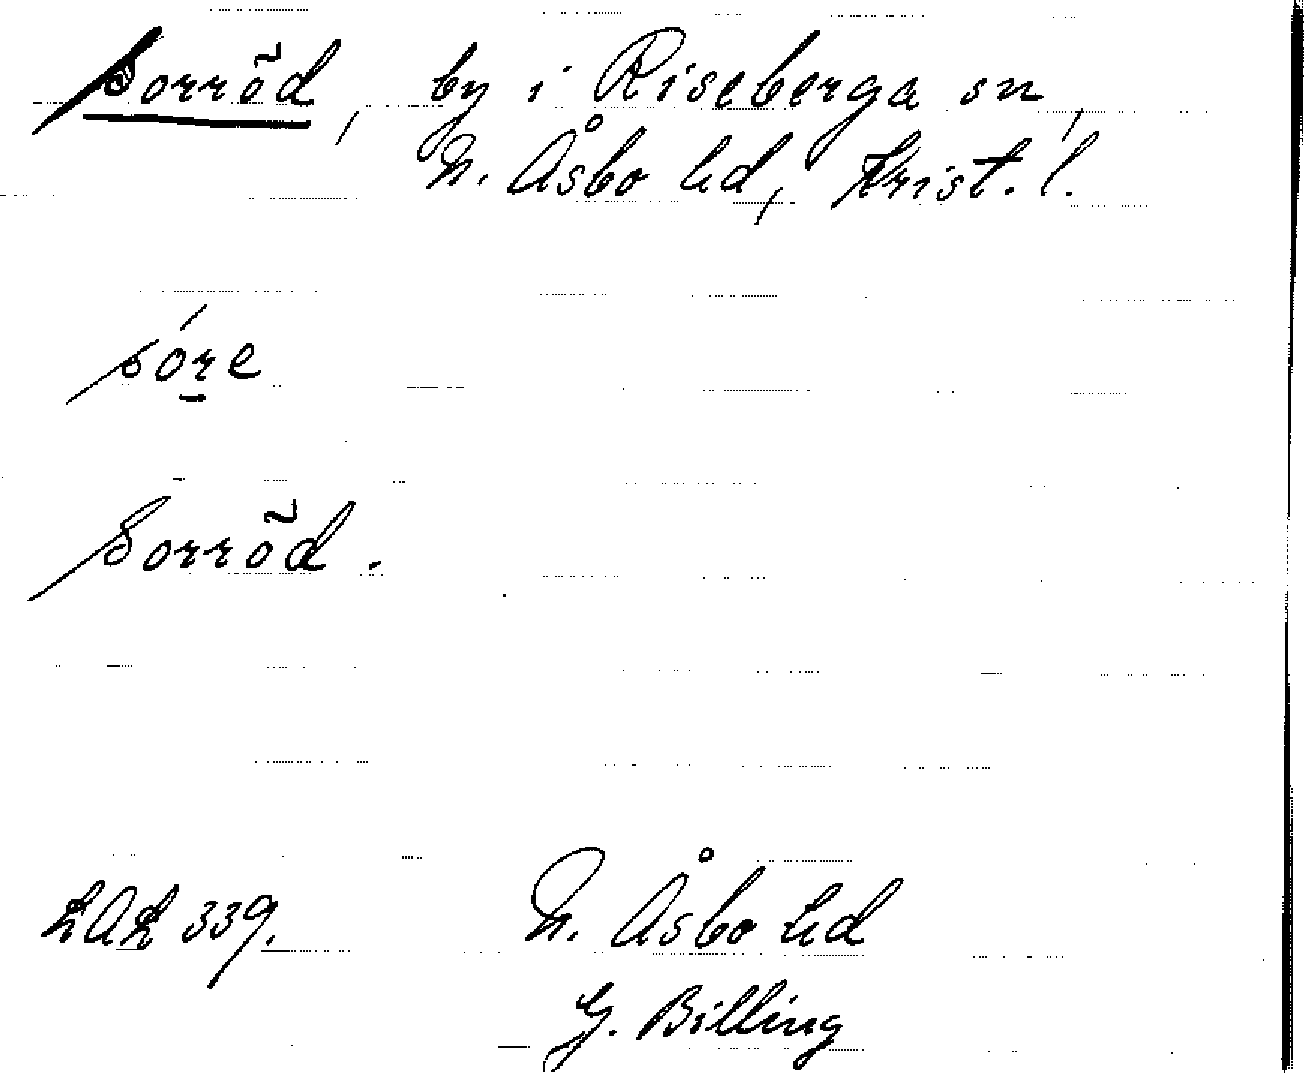 Sorröd, by i Riseberga sn,
N. Åsbo hd, Krist. l.
sóre
Sorröd.
LAL 339.
N. Åsbo hd
G. Billing